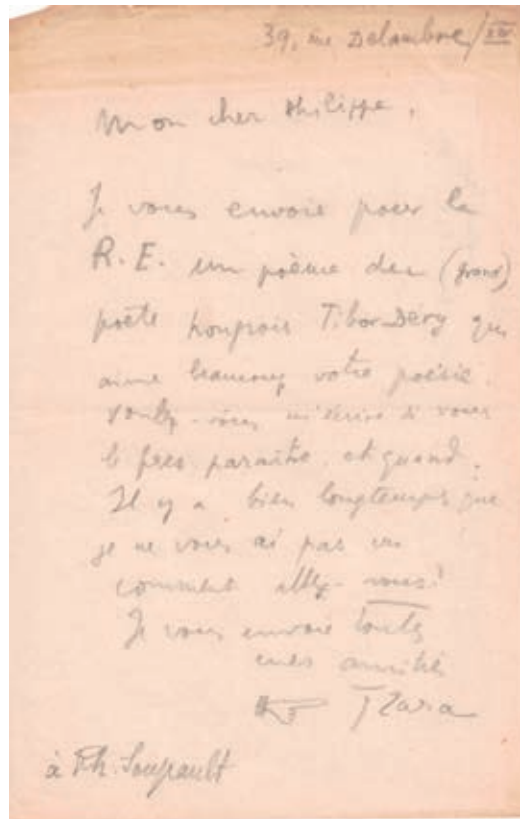 39, rue Delambre/XIV
Mon cher Philippe,
Je vous envoie pour la
R.E. un poème du (grand)
poète hongrois Tibor Déry qui
aime beaucoup votre poésie.
Voulez-vous m'écrire si vous
le fres paraître, et quand.
Il y a bien longtemps que
je ne vous ai pas vu
comment allez-vous?
Je vous envoie toutes
mes amitiés
Tzara
à Ph. Soupault